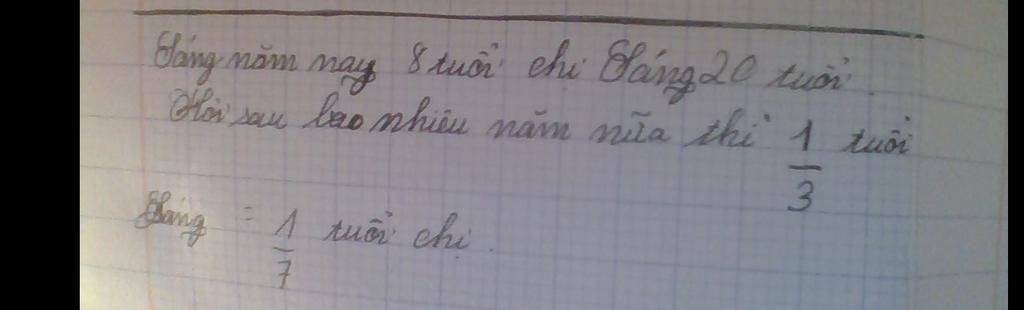 Sáng năm nay 8 tuổi chị Sáng 20 tuổi.
Hỏi sau bao nhiêu năm nữa thì 1/3 tuổi
Sáng = 1/7 tuổi chị.